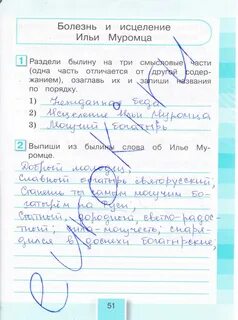 Болезнь и исцеление
Ильи Муромца
1 Раздели былину на три смысловые части
(одна часть отличается от другой содер-
жанием), озаглавь их и запиши названия
по порядку.
1) Нежданная беда
2) Исцеление Ильи Муромца
3) Могучий богатырь
2 Выпиши из былины слова об Илье Му-
ромце.
Добрый молодец,
Славный богатырь святорусский,
Станешь ты самым могучим бог-
атырём на Руси,
Статный, дородный, светло-радос-
тный; сила-могучесть; снаря-
дился в доспехи богатырские,
51